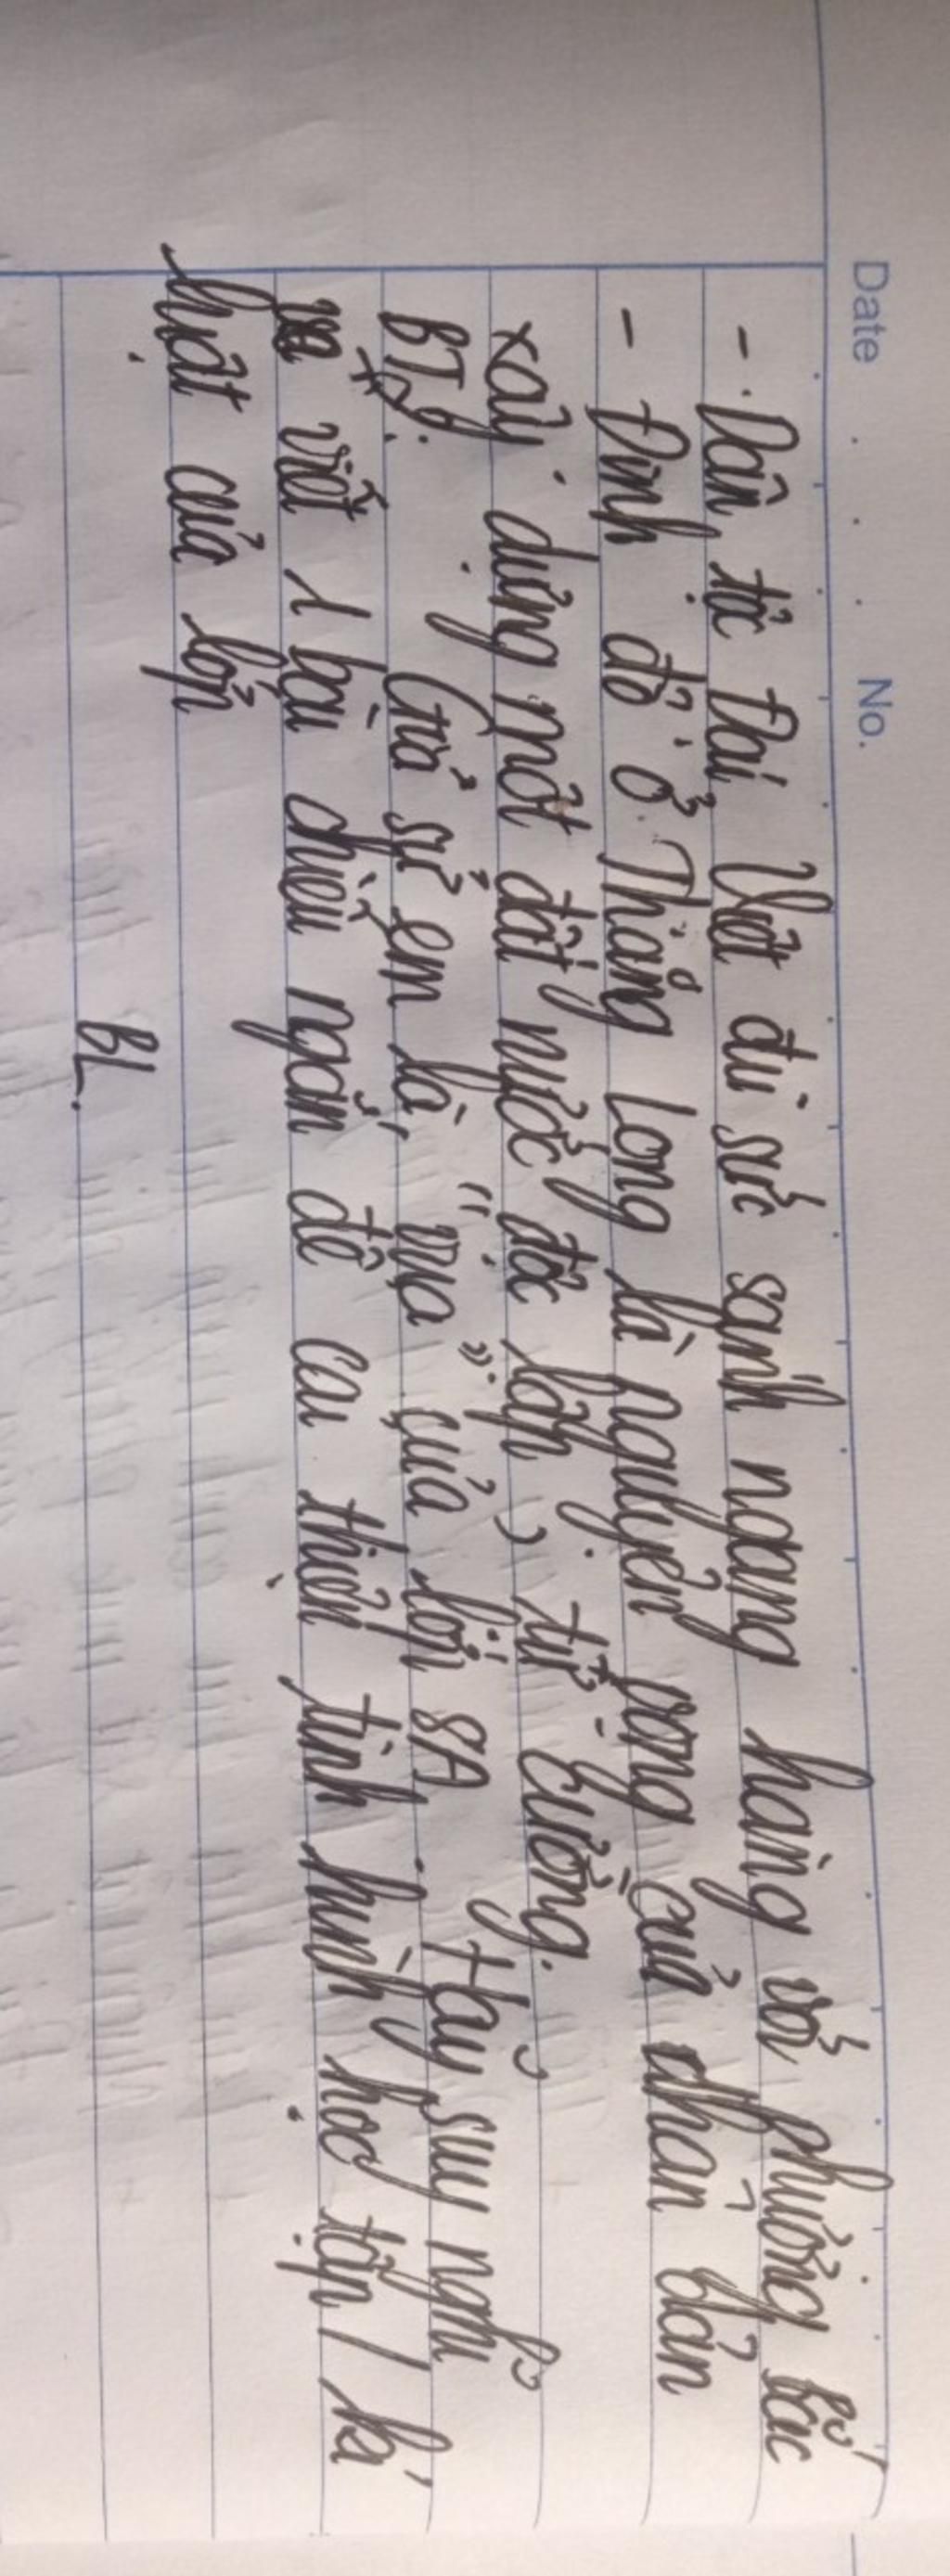 Date No.
- Dân tộc Đại Việt đủ sức sánh ngang hàng với phương Bắc
- Định đô ở Thăng Long là nguyện vọng của nhân dân
xây dựng một đất nước độc lập, tự cường.
BT4: Giả sử em là "vua" của lớp 8A. Hãy suy nghĩ
và viết 1 bài chiếu ngắn để cải thiện tình hình học tập / kỉ
luật của lớp
BL.